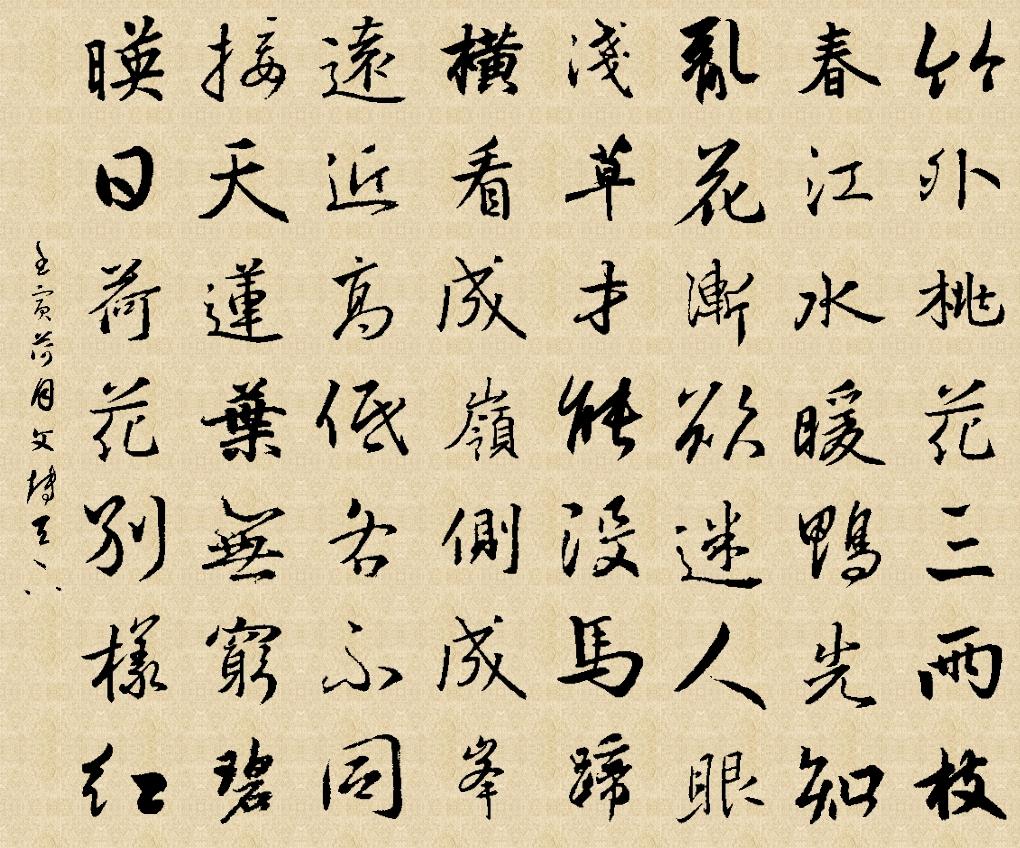 竹外桃花三兩枝
春江水暖鴨先知
亂花漸欲迷人眼
淺草才能沒馬蹄
橫看成嶺側成峯
遠近高低各不同
接天蓮葉無窮碧
暎日荷花別樣紅
壬寅荷月文博